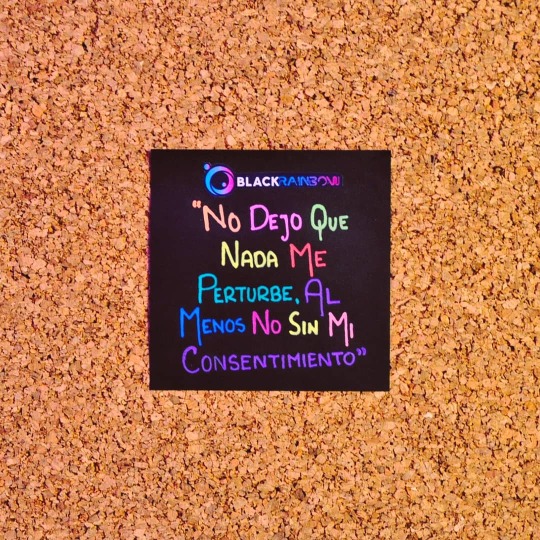 BLACKRAINBOW
"No Dejo Que
Nada Me
Perturbe, Al
Menos No Sin Mi
Consentimiento"